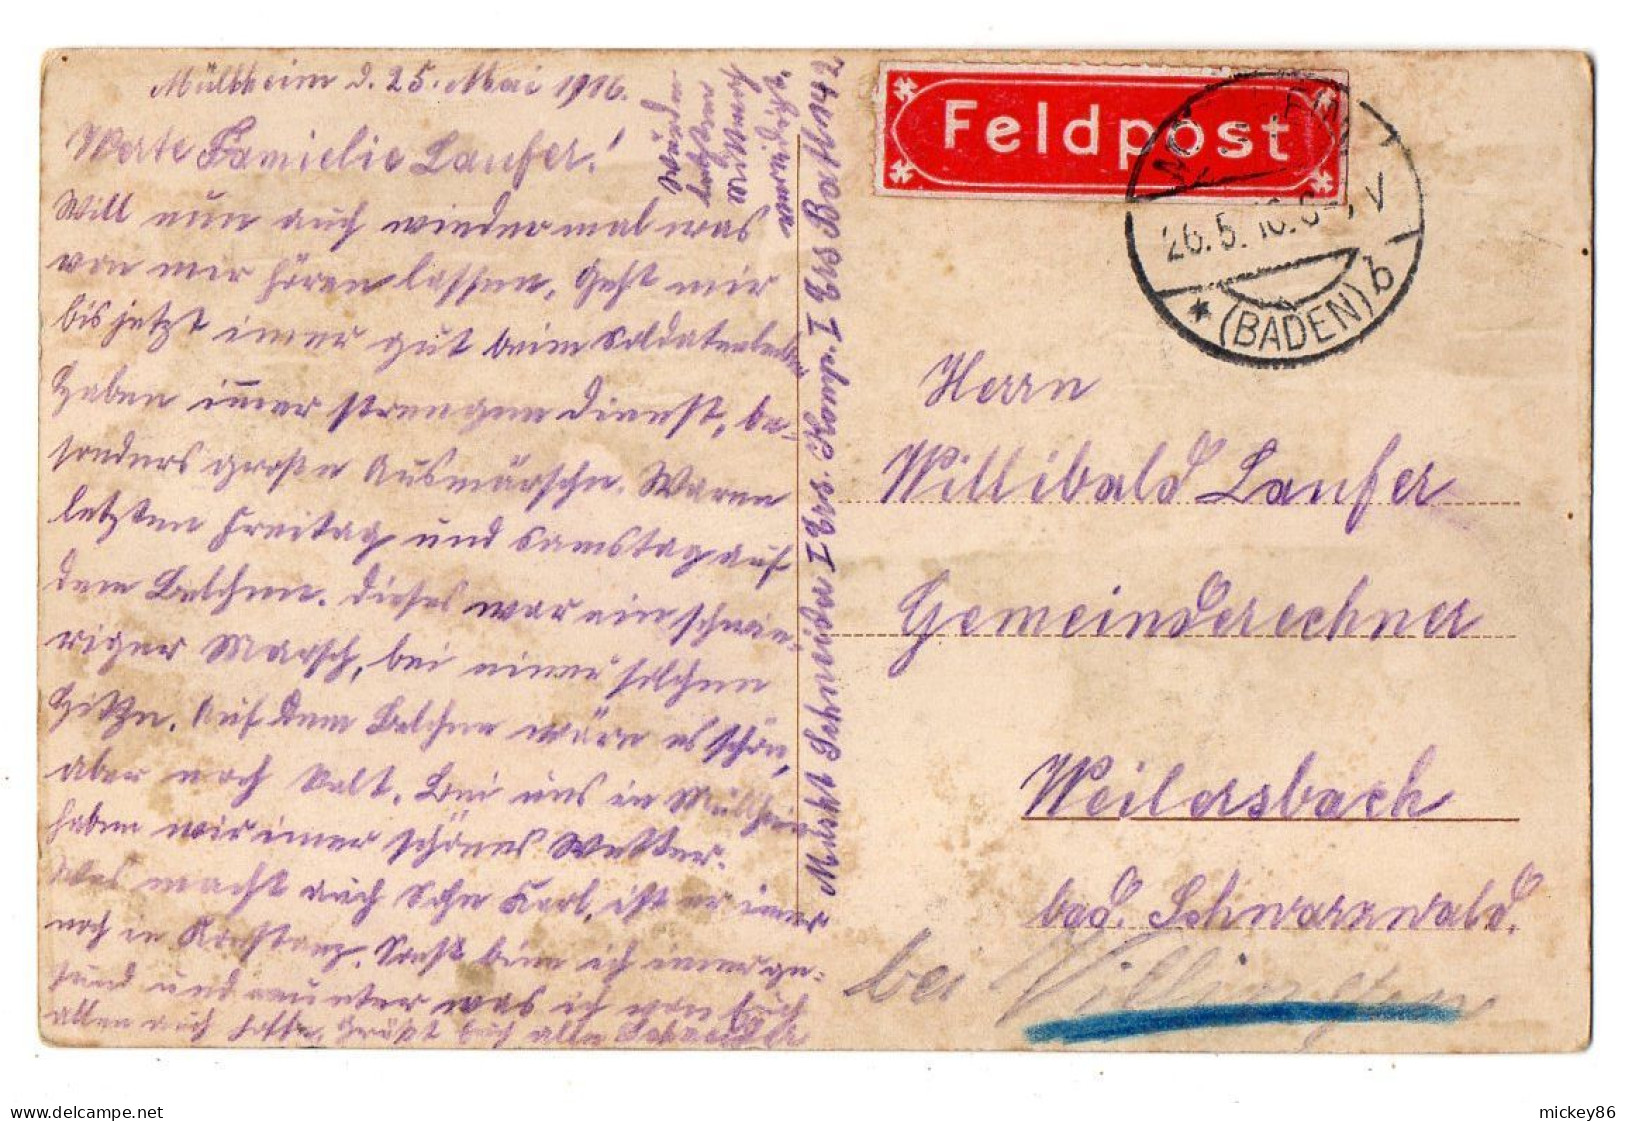 Müllheim d. 25. Mai 1916.
Werte Familie Laufer!
Will nun auch wiedermal was
von mir hören lassen. Geht mir
bis jetzt imer gut beim Soldatenleben
Haben imer strengen Dienst, be-
sonders große Ausmärsche. Waren
letzten Freitag und Samstag auf
dem Belchen. Dieses war ein schwie-
riger Marsch, bei einer solchen
Hitze. Auf dem Belchen wäre es schön,
aber noch kalt. Bei uns in Müllheim
haben wir imer schönes Wetter.
Was macht auch Sohn Karl, ist er imer
noch in Konstanz. Sonst bin ich imer ge-
sund und munter was ich von Euch
allen auch hoffe. Grüßt Euch alle Schneider
Würden
Antwort
Musk. Schneider I Ers. Komp. I. Ers. Batl. 142
Feldpost
26.5.16.
* (BADEN) b
Herrn
Willibald Laufer
Gemeinderechner
Weilersbach
bad. Schwarzwald.
bei Villingen
mickey86